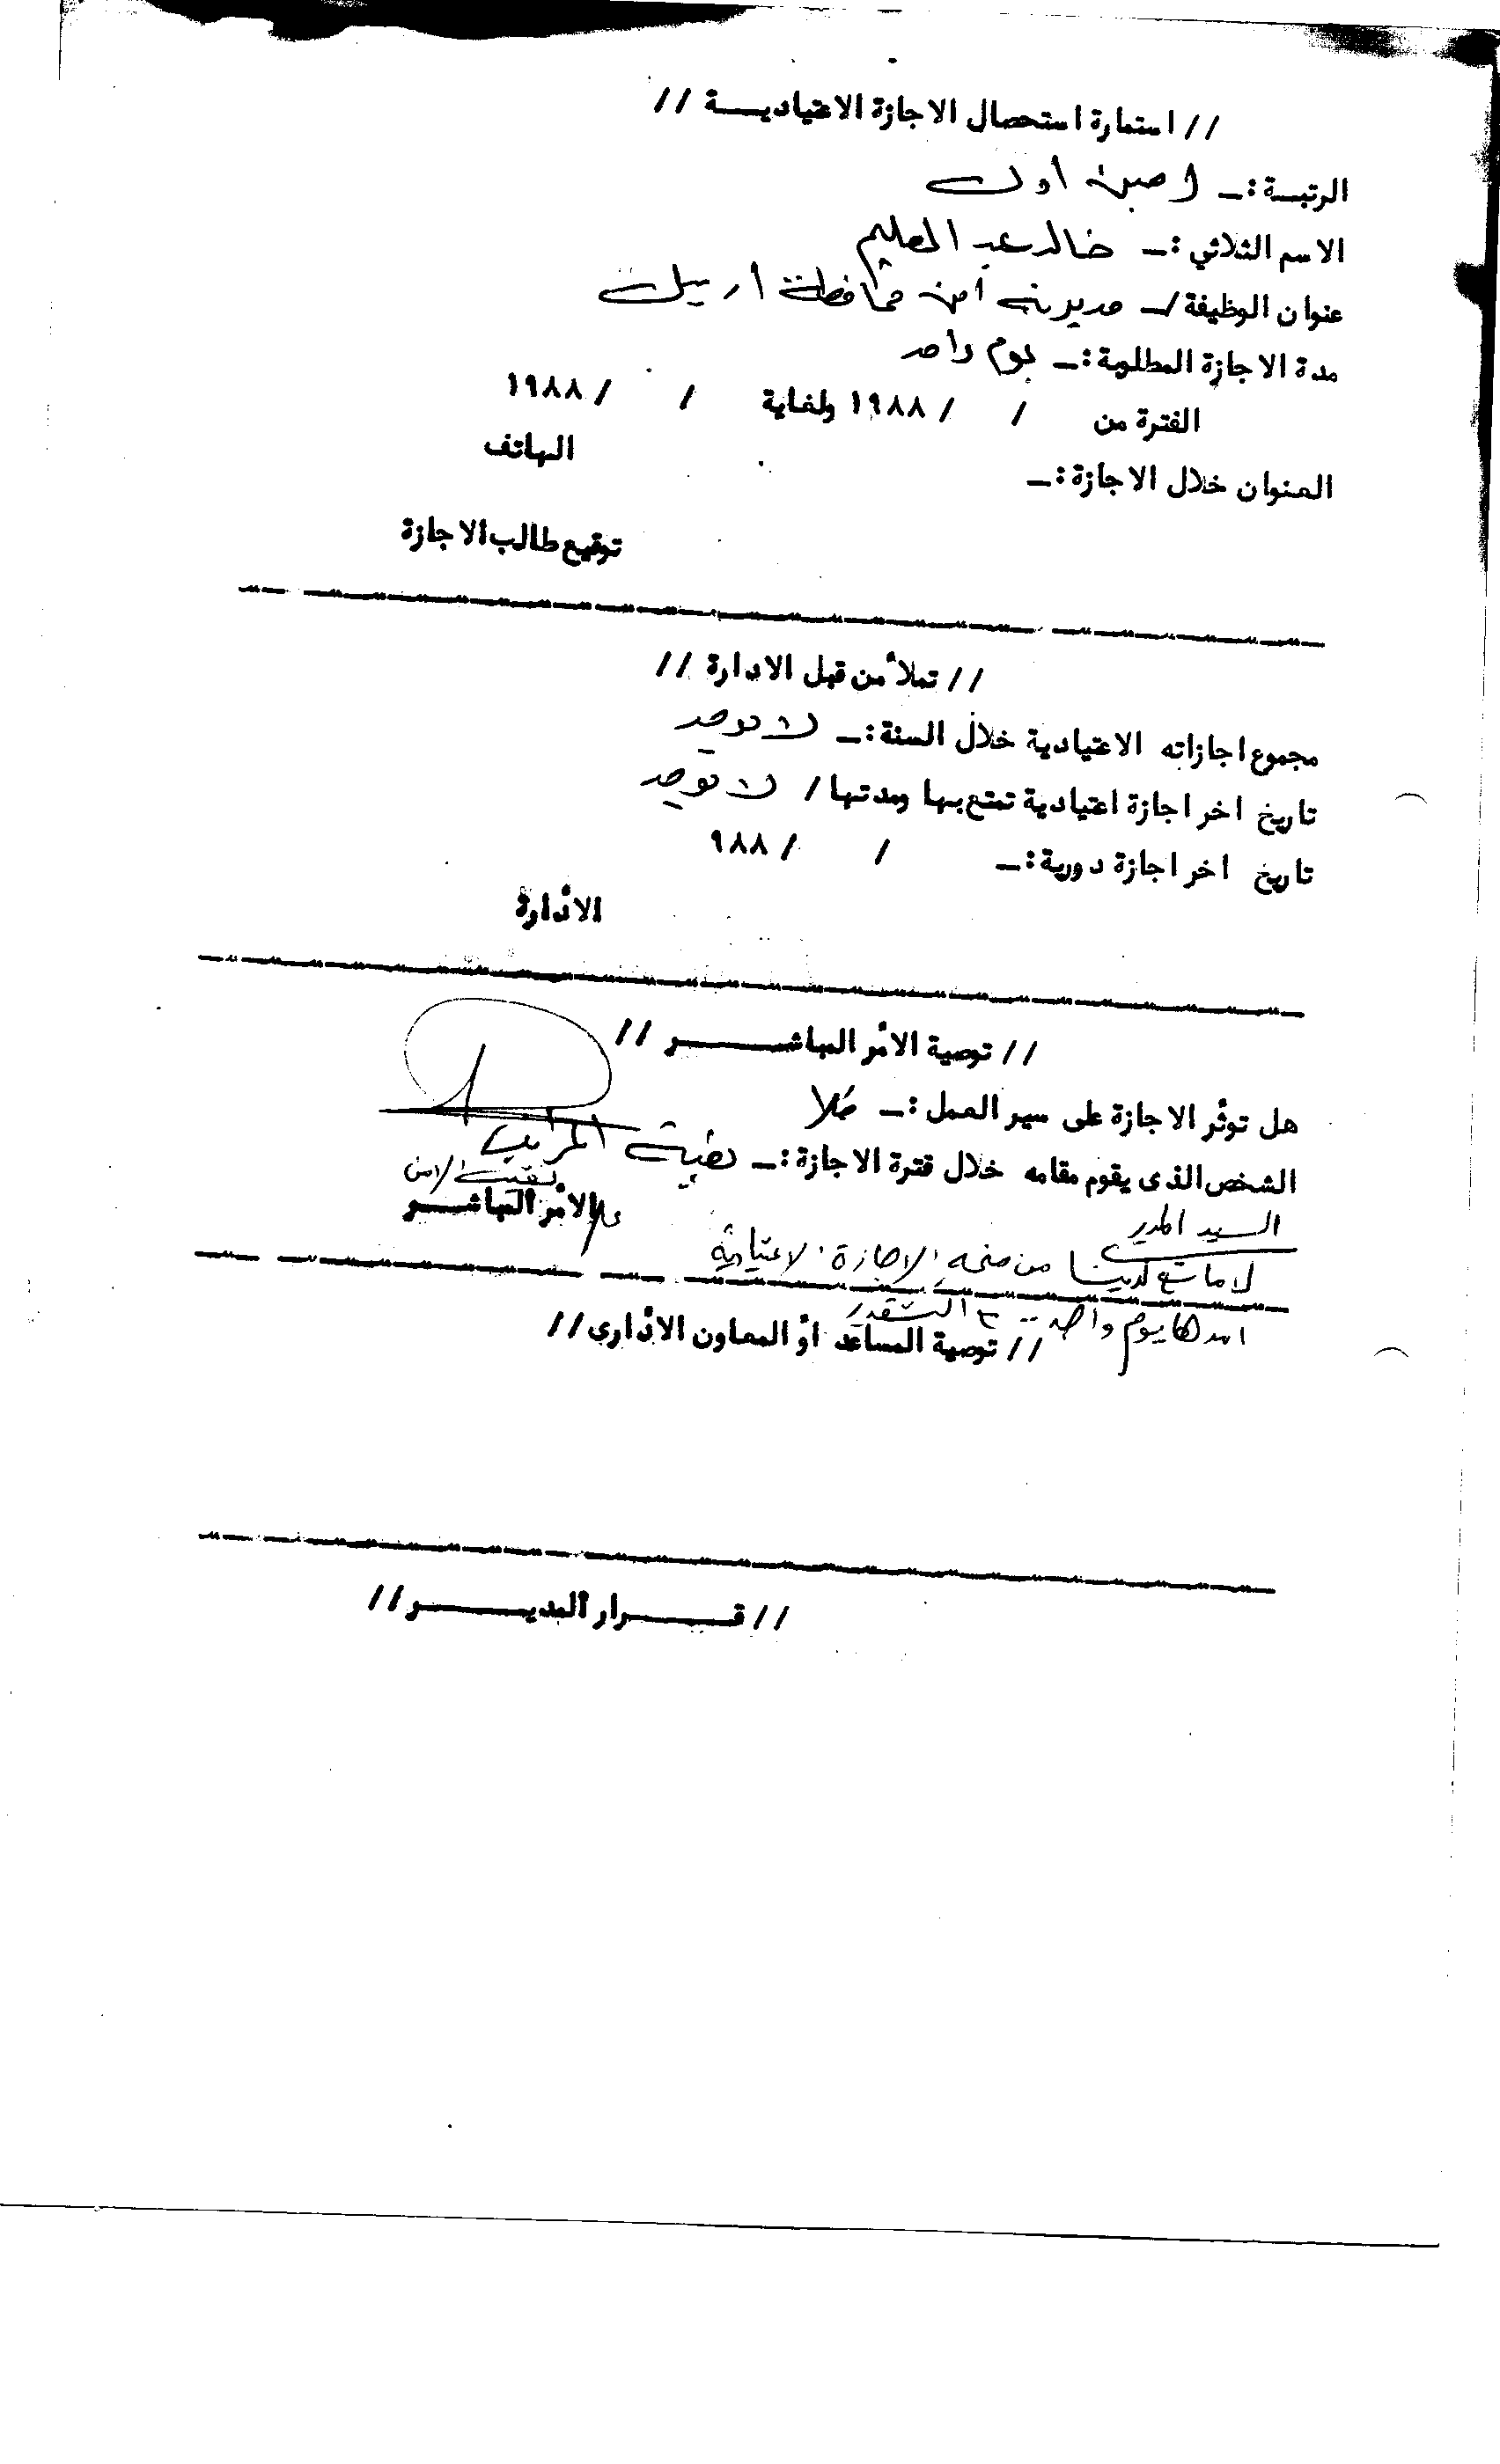 // استمارة استحصال الاجازة الاعتياديـــة //
الرتبسة :ـ امين اول
الاسم الثلاثي :ـ خالد عبد الحليم
عنوان الوظيفة /ـ مديرية أمن محافظة أربيل
مدة الاجازة المطلوبة :ـ يوم واحد
الفترة من / / ١٩٨٨ ولغاية / / ١٩٨٨
العنوان خلال الاجازة :ـ الهاتف
توقيع طالب الاجازة
// تملأ من قبل الادارة //
مجموع اجازاته الاعتيادية خلال السنة :ـ لا توجد
تاريخ اخر اجازة اعتيادية تمتع بها ومدتها / لا توجد
تاريخ اخر اجازة دورية :ـ / / ٩٨٨
الأدارة
// توصية الأمر المباشـــــر //
هل تؤثر الاجازة على سير العمل :ـ كلا
الشخص الذى يقوم مقامه خلال فترة الاجازة :ـ بقية المراتب
نقيب الامن
الأمر المباشـــر
السيد المدير
لا مانع لدينا من منحه الاجازة الاعتيادية
امدها يوم واحد .. مع التقدير
// توصية المساعد أو المعاون الأداري //
// قـــــرار المديـــــر //